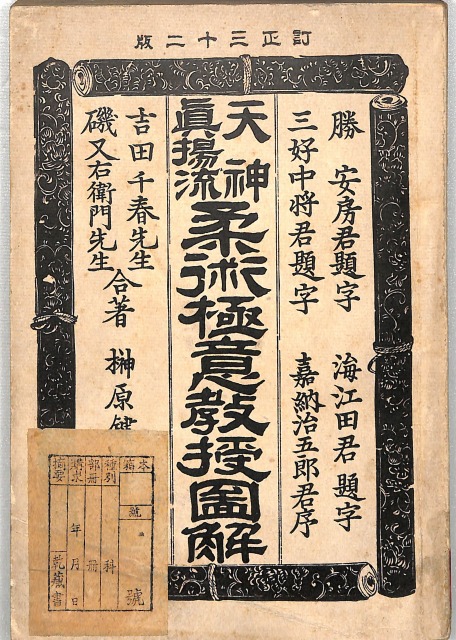 訂正三十二版
勝 安房君題字 海江田君題字
三好中将君題字 嘉納治五郎君序
天神
眞揚流
柔術極意教授圖解
吉田千春先生
磯又右衛門先生
合著 榊原健
本箱 號 號
種別 科
部冊 冊
年 月 日
摘要 乾藏書